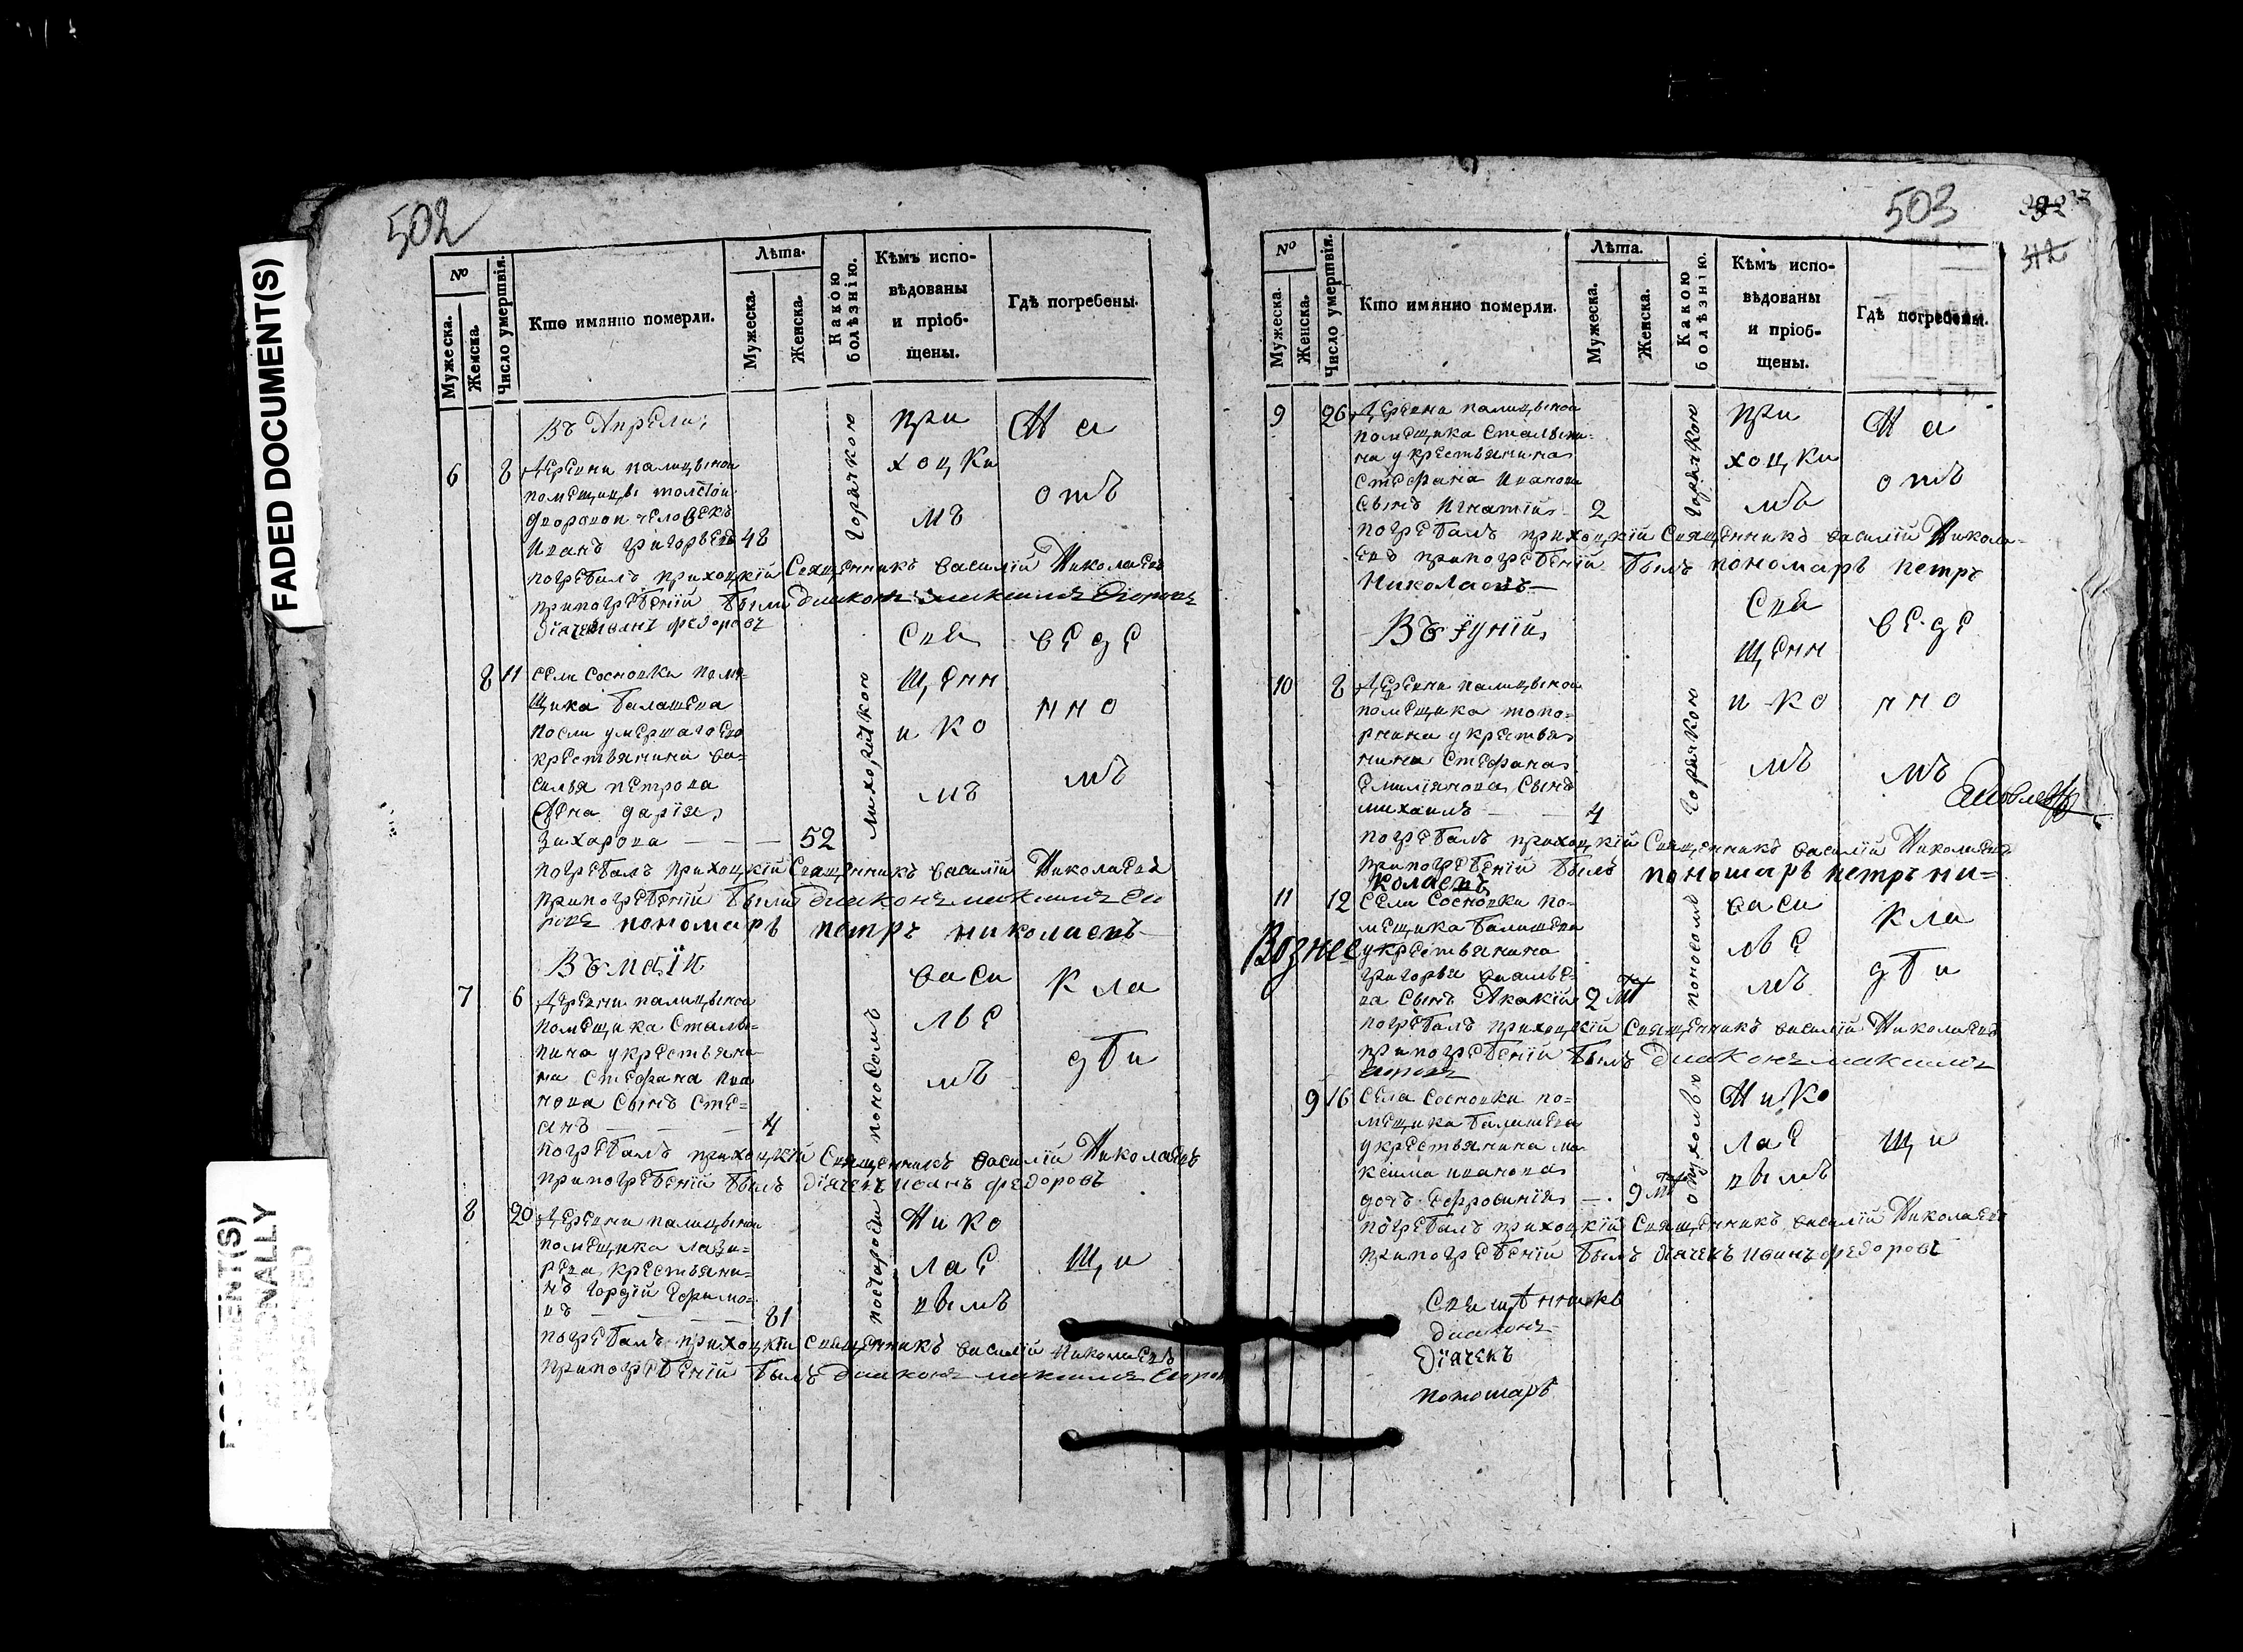 FADED DOCUMENT(S)
502
№
Мужеска.
Женска.
Число умершвія.
Кто имянно померли.
Лѣта.
Мужеска.
Женска.
Какою болѣзнію.
Кѣмъ испо-
вѣдованы
и пріоб-
щены.
Гдѣ погребены.
Въ Апрели,
6 8 деревни палицыной
помещицы толстой
дворовой человекъ
Иванъ григорьевъ 48
горячкою
погребалъ прихоцкій Священникъ василій Николаевъ
припогребеніи были диаконъ максимъ Егоровъ
діячекъ иванъ федоровъ
8 11 Села Сосновки поме-
щика балашева
посли умершаго Его
крестьянина ва-
силья петрова
жена дарія
захарова — — — 52
лихораткою
погребалъ прихоцкій Священникъ василій Николаевъ
припогребеніи были диаконъ максимъ Его
ровъ пономаръ петръ николаевъ
Въ маіи
7 6 деревни палицыной
помещика Сталы-
пина укрестьяни-
на Стефана Ива
нова Сынъ Сте-
анъ — — — 4
поносомъ
погребалъ прихоцкій Священникъ василій Николаевъ
припогребеніи былъ діячекъ иванъ федоровъ
8 20 деревни палицыной
помещика лазы-
рева крестьяни-
нъ гордій Ефимо-
въ — — — 81
постарости
погребалъ прихоцкій священникъ василій Николаевъ
припогребеніи былъ диаконъ максимъ Егоровъ
при
хоцки
мъ
Свя
щенн
ико
мъ
васи
лье
мъ
Нико
лае
вымъ
На
отъ
веде
нно
мъ
кла
дби
щи
503
312
№
Мужеска.
Женска.
Число умершвія.
Кто имянно померли.
Лѣта.
Мужеска.
Женска.
Какою болѣзнію.
Кѣмъ испо-
вѣдованы
и пріоб-
щены.
Гдѣ погребены.
9 26 деревни палицыной
помещика Сталыпи-
на укрестьянина
Стефана Иванова
Сынъ Игнатій 2
горячкою
погребалъ прихоцкій Священникъ василій Никола-
евъ припогребеніи былъ пономаръ петръ
Николаевъ
Въ Іуніи,
10 8 деревни палицыной
помещика топо-
рнина укрестья
нина Стефана
Емиліянова Сынъ
михаилъ — 4
горячкою
погребалъ прихоцкій Священникъ василій Николаевъ
припогребеніи былъ пономаръ петръ ни-
колаевъ
11 12 Села Сосновки по-
мещика балашева
Вознесе
укрестьянина
григорья василье-
ва Сынъ Акакій 2 мц
поносомъ
погребалъ прихоцкій Священникъ василій Николаевъ
припогребеніи былъ диаконъ максимъ
Егоровъ
9 16 Села Сосновки по-
мещика балашева
укрестьянина ма
ксима иванова
дочь Ефросинія — 9 мц
опухолью
погребалъ прихоцкій Священникъ василій Николаевъ
припогребеніи былъ діячекъ иванъ федоровъ
при
хоцки
мъ
Свя
щенн
ико
мъ
васи
лье
мъ
Нико
лае
вымъ
На
отъ
веде
нно
мъ
кла
дби
щи
Священникъ
диаконъ
Діячекъ
пономаръ